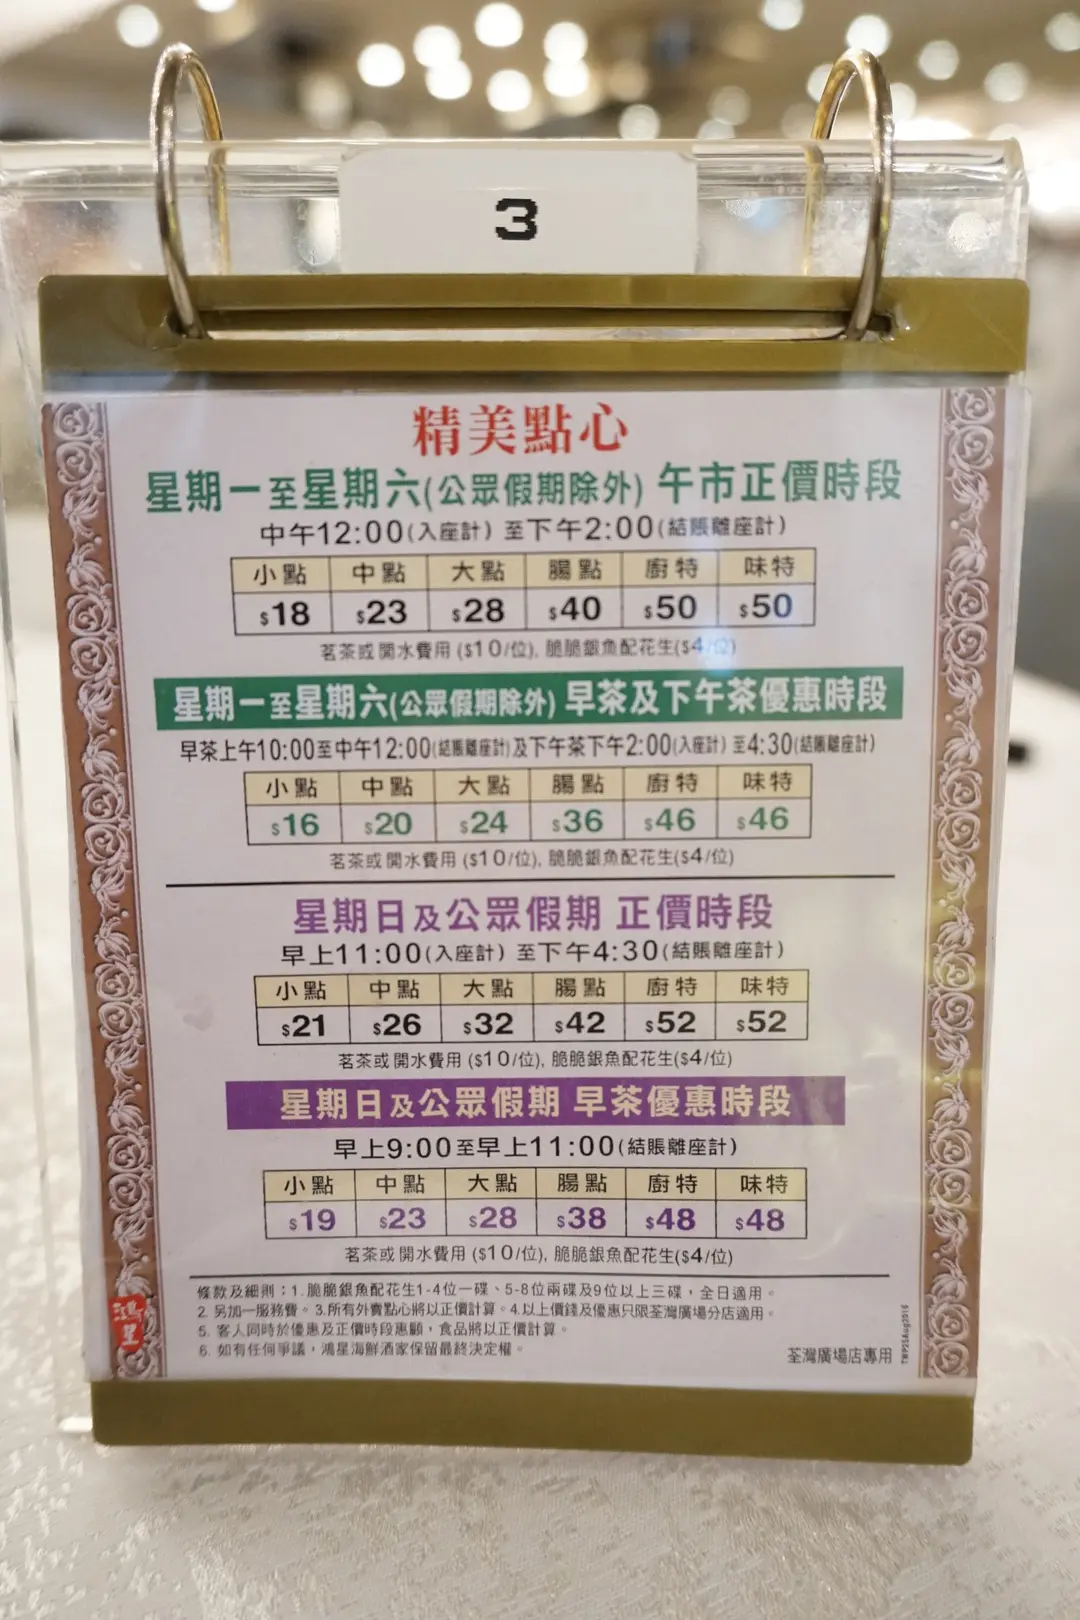 3
精美點心
星期一至星期六(公眾假期除外) 午市正價時段
中午12:00(入座計) 至下午2:00(結賬離座計)
小點 中點 大點 腸點 廚特 味特
$18 $23 $28 $40 $50 $50
茗茶或開水費用 ($10/位), 脆脆銀魚配花生($4/位)
星期一至星期六(公眾假期除外) 早茶及下午茶優惠時段
早茶上午10:00至中午12:00(結賬離座計)及下午茶下午2:00(入座計) 至4:30(結賬離座計)
小點 中點 大點 腸點 廚特 味特
$16 $20 $24 $36 $46 $46
茗茶或開水費用 ($10/位), 脆脆銀魚配花生($4/位)
星期日及公眾假期 正價時段
早上11:00(入座計) 至下午4:30(結賬離座計)
小點 中點 大點 腸點 廚特 味特
$21 $26 $32 $42 $52 $52
茗茶或開水費用 ($10/位), 脆脆銀魚配花生($4/位)
星期日及公眾假期 早茶優惠時段
早上9:00至早上11:00(結賬離座計)
小點 中點 大點 腸點 廚特 味特
$19 $23 $28 $38 $48 $48
茗茶或開水費用 ($10/位), 脆脆銀魚配花生($4/位)
條款及細則：1. 脆脆銀魚配花生1-4位一碟、5-8位兩碟及9位以上三碟，全日適用。
2. 另加一服務費。3.所有外賣點心將以正價計算。4.以上價錢及優惠只限荃灣廣場分店適用。
5. 客人同時於優惠及正價時段惠顧，食品將以正價計算。
6. 如有任何爭議，鴻星海鮮酒家保留最終決定權。
鴻星
荃灣廣場店專用